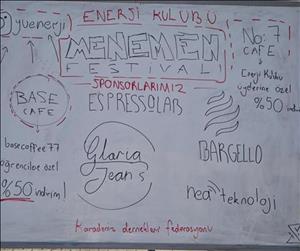 yuenerji
ENERJİ KULÜBÜ
MENEMEN
FESTİVALİ
SPONSORLARIMIZ
BASE
CAFE
basecoffee77
öğrencilere özel
%50 indirim!
ESPRESSOLAB
Gloria
Jean's
No: 7
CAFE
Enerji Kulübü
üyelerine özel
%50
BARGELLO
nea teknoloji
Karadeniz dernekleri federasyonu